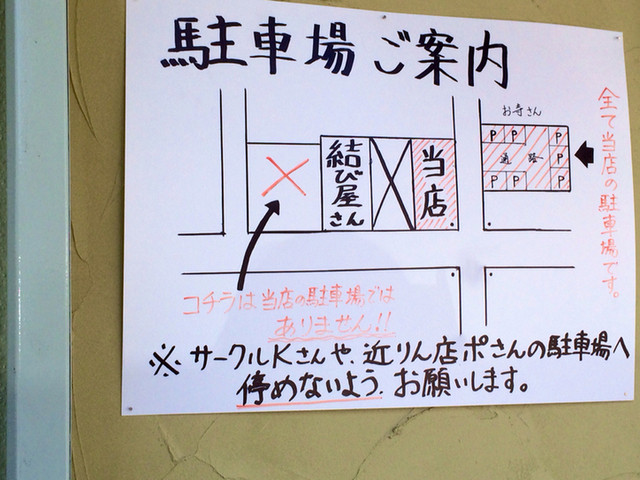 駐車場ご案内
お寺さん
P P P
通路 P
P P P
全て当店の駐車場です。
結び屋さん
当店
コチラは当店の駐車場では
ありません!!
※サークルKさんや、近りん店ポさんの駐車場へ
停めないよう、お願いします。